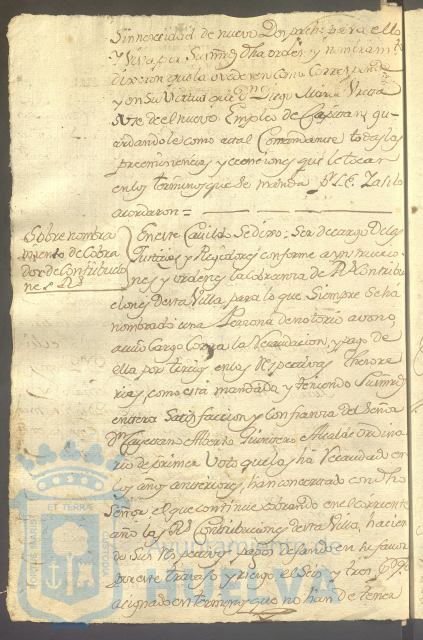 sin necesidad de nuevo Don pren. para ello
y Vista por Sus mrds dha orden, y nombramto
dixeron que la ovedecen como corresponde
y en su Virtud que Dn Diego Maria
sirve de el nuevo Empleo de Capitan, gu-
ardandole como a tal Comandante todas las
preeminencias, y ecenciones que le tocan
en los terminos que se manda pr S.E. Y asi lo
acordaron =
Sobre nombra
miento de Cobra
dor de Contribucio
nes Rs
En este Cavildo se dixo: Ser de cargo de los
Justicias y Regidores conforme a Ynstruccio-
nes y ordenes la cobranza de Rs Contribu
ciones de esta Villa, para lo que siempre se há
nombrado una Persona de notorio avono,
a cuio cargo corra la recaudacion, y pago de
ella por tercios en las respectivas Thesore
rias, como está mandado, y teniendo Sus mrds
entera Satisfaccion, y Confianza del Señor
Dn Cayetano Alberto Quintero Alcalde Ordina
rio de primer Voto que las há recaudado en
los años anteriores, han concertado con dho
Señor el que continúe cobrando en el corriente
año las Rs Contribuciones de esta Villa, hacien
do sus respectivos pagos dejando en su favor
por este travajo y riesgo, el seis y tres p%
asignado en terminos que no han de tener
PORTUS MARIS ET TERRAE CUSTODIA
Ayuntamiento de
HUELVA